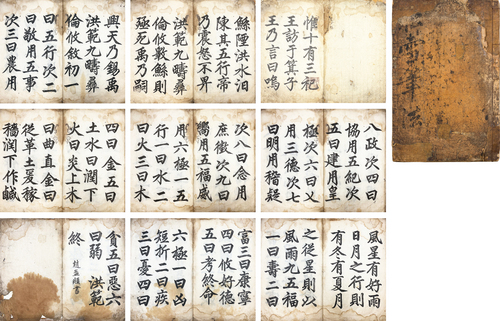 惟十有三祀
王訪于箕子
王乃言曰嗚
鯀陻洪水汨
陳其五行帝
乃震怒不畀
洪範九疇彝
倫攸斁鯀則
殛死禹乃嗣
興天乃錫禹
洪範九疇彝
倫攸敘初一
曰五行次二
曰敬用五事
次三曰農用
八政次四曰
協用五紀次
五曰建用皇
極次六曰乂
用三德次七
曰明用稽疑
次八曰念用
庶徵次九曰
嚮用五福威
用六極一五
行一曰水二
曰火三曰木
四曰金五曰
土水曰潤下
火曰炎上木
曰曲直金曰
從革土爰稼
穡潤下作鹹
風星有好雨
日月之行則
有冬有夏月
之從星則以
風雨九五福
一曰壽二曰
富三曰康寧
四曰攸好德
五曰考終命
六極一曰凶
短折二曰疾
三曰憂四曰
貧五曰惡六
曰弱 洪範
終
趙孟頫書